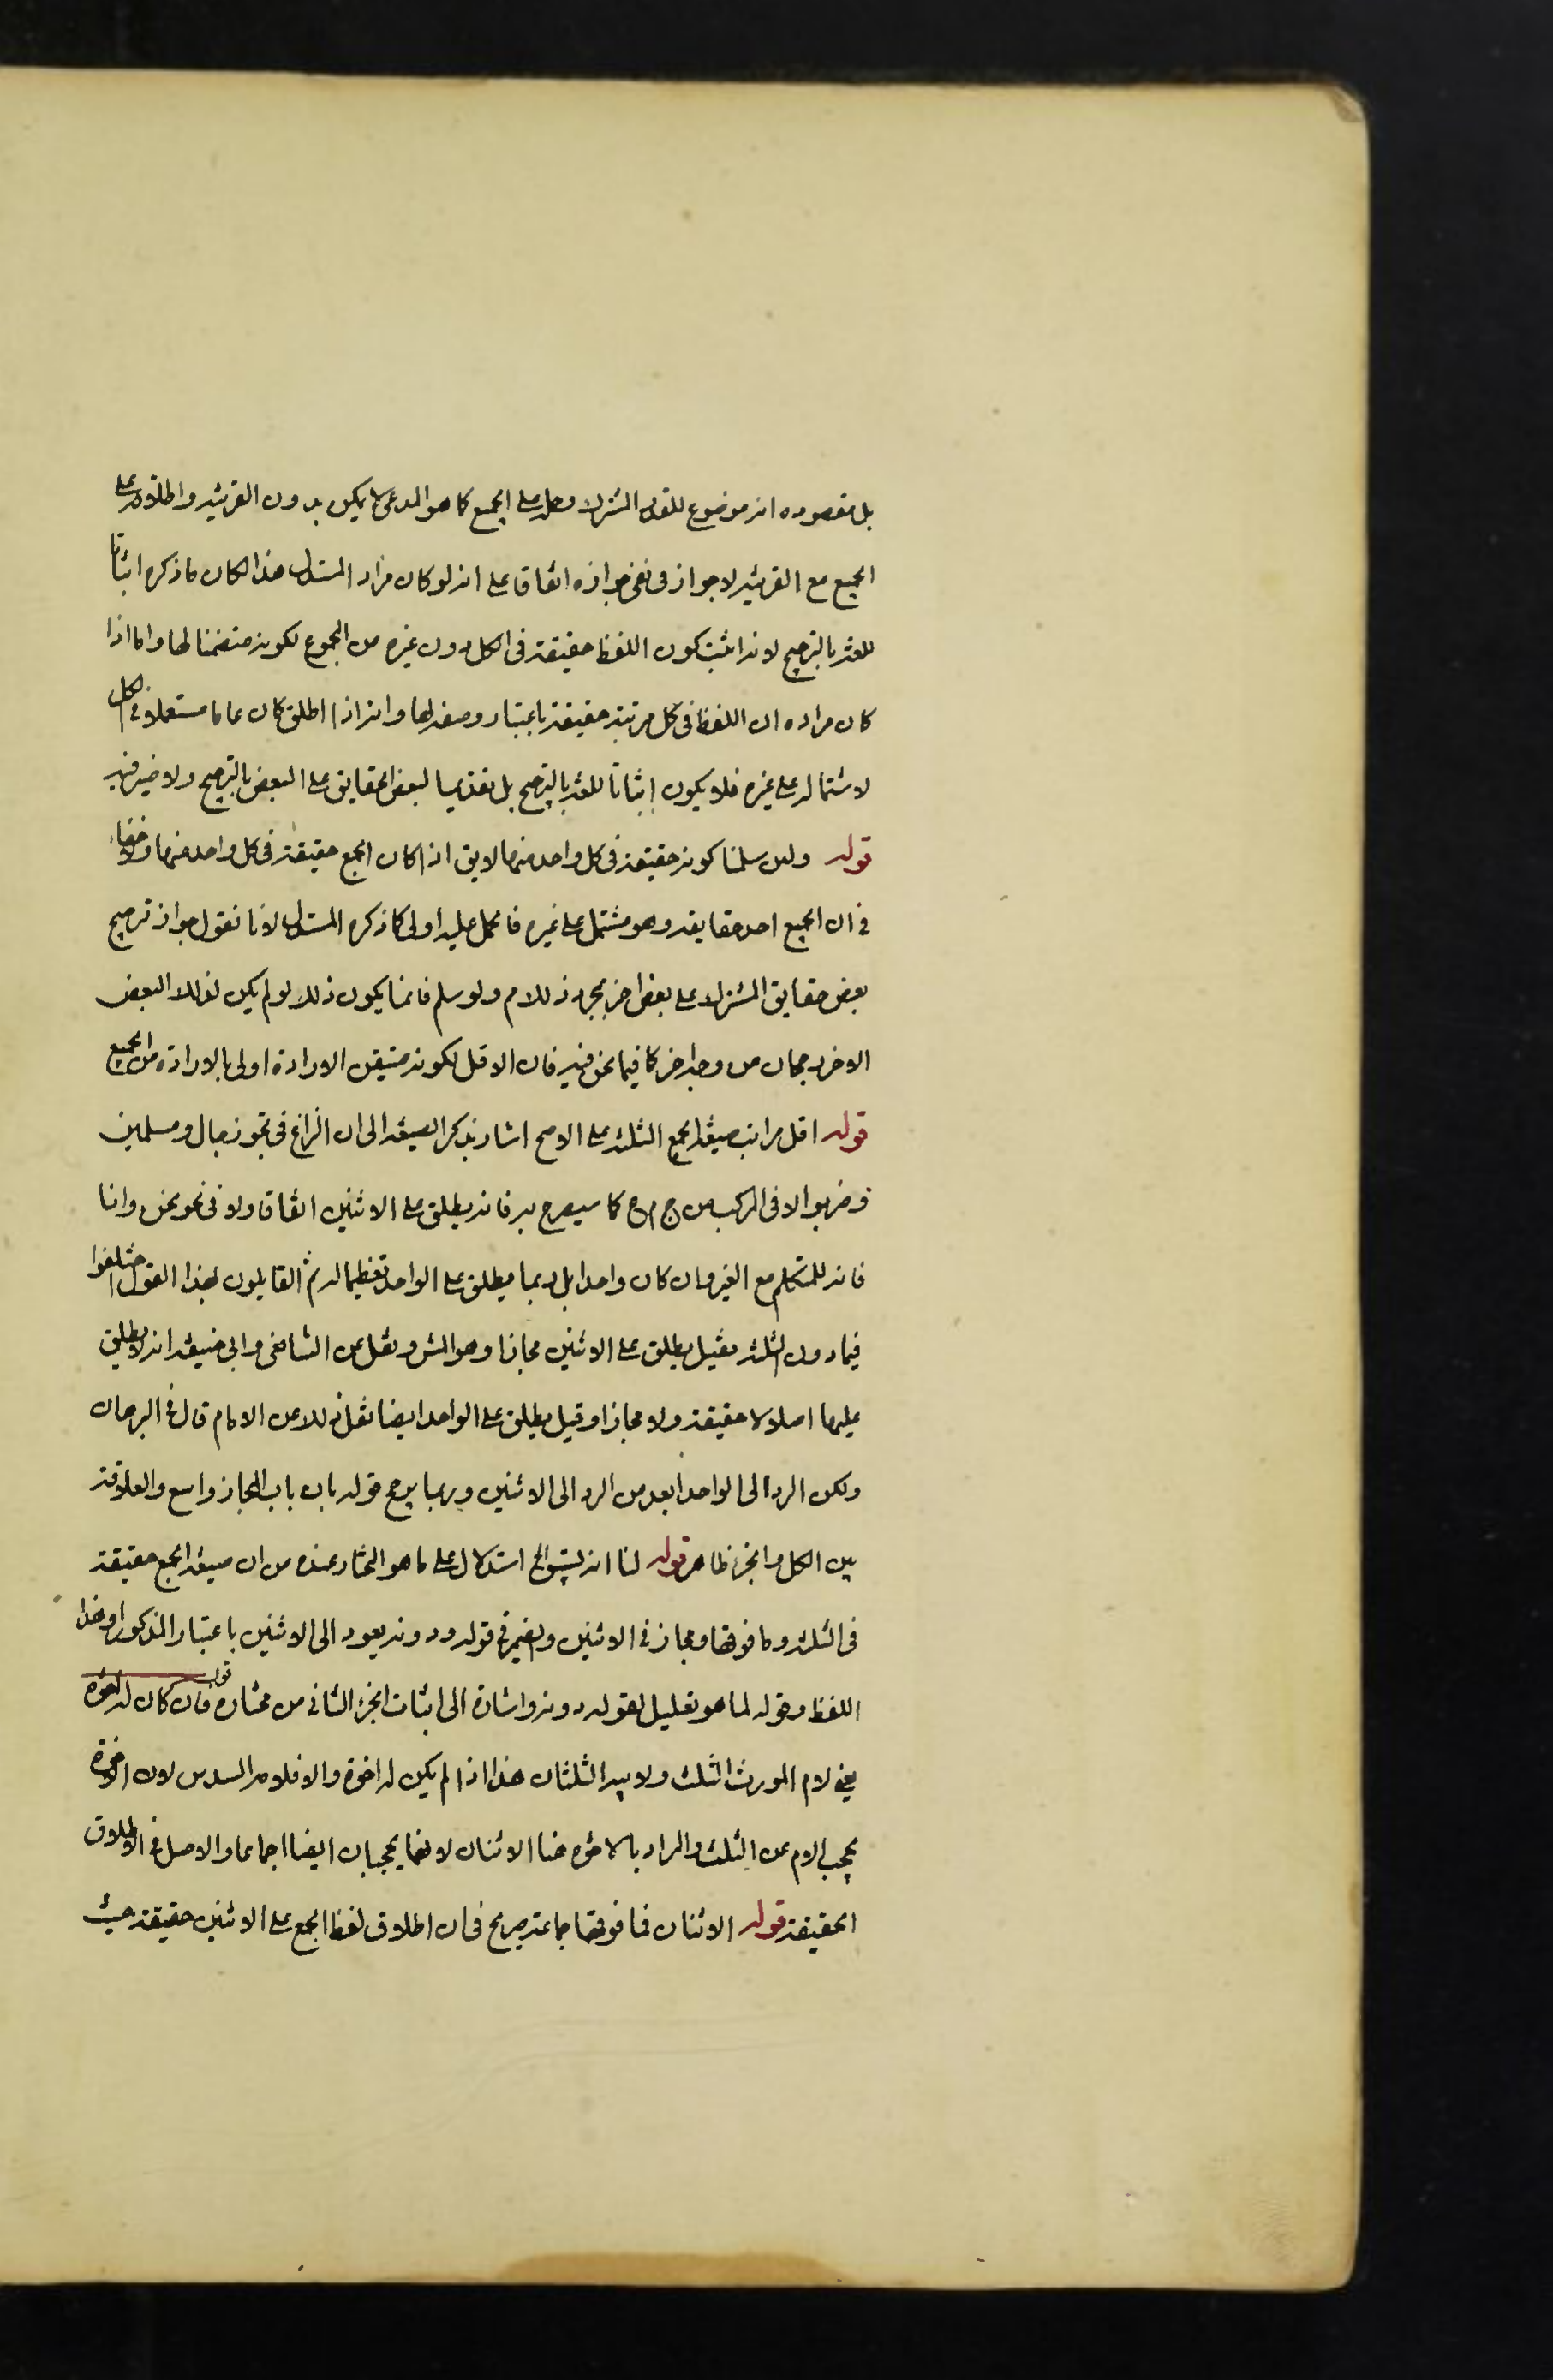 بل مقصوده انه موضوع للقدر المشترك وحمله على الجميع كما هو المدعى لا يكون بدون القرينة واطلاقه على
الجميع مع القرينة لا جواز في نفى جوازه اتفاقا على انه لو كان مراد المستدل هذا لكان ما ذكره اثباتا
للغة بالترجيح لانه اثبت كون اللفظ حقيقة في الكل دون غيره من المجموع لكونه متضمنا لها واما اذا
كان مراده ان اللفظ في كل مرتبة حقيقة باعتبار وصفه لها وانه اذا اطلق كان عاما مستعملا في الكل
لاشتماله على غيره فلا يكون إثباتا للغة بالترجيح بل تقديما لبعض الحقايق على البعض بالترجيح ولا ضير فيه
قوله ولئن سلمنا كونه حقيقة في كل واحد منها لا يق اذا كان الجمع حقيقة في كل واحد منها ولا خفاء
في ان الجميع احد حقايقه وهو مشتمل على غيره فالحمل عليه اولى كما ذكره المستدل لانا نقول جواز ترجيح
بعض حقايق المشترك على بعض اخر بمجرد ذلك مم ولو سلم فانما يكون ذلك لو لم يكن لذلك البعض
الاخر رجحان من وجه اخر كما فيما نحن فيه فان الاقل لكونه متيقن الارادة اولى بالارادة من الجميع
قوله اقل مراتب صيغة الجمع الثلثة على الاصح اشار بذكر الصيغة الى ان النزاع في نحو رجال ومسلمين
وضربوا لا في المركب من ج م ع كما سيصرح به فانه يطلق على الاثنين اتفاقا ولا في نحو نحن وانا
فانه للمتكلم مع الغير وان كان واحدا بل ربما يطلق على الواحد تعظيما له ثم القايلون بهذا القول اختلفوا
فيما دون الثلثة فقيل يطلق على الاثنين مجازا وهو المش ونقل عن الشافعي وابى حنيفة انه لا يطلق
عليهما اصلا لا حقيقة ولا مجازا وقيل يطلق على الواحد ايضا نقل ذلك عن الامام قال في البرهان
ولكن الرد الى الواحد ابعد من الرد الى الاثنين وربما يرجح قوله بان باب المجاز واسع والعلاقة
بين الكل والجزء ظاهر قوله لنا انه يسبق الخ استدلال على ما هو المختار عنده من ان صيغة الجمع حقيقة
في الثلثة وما فوقها ومجاز في الاثنين والضمير في قوله دونه يعود الى الاثنين باعتبار المذكور او هذا
اللفظ وقوله لما هو تعليل لقوله دونه واشارة الى اثبات الجزء الثاني من مختاره قوله فان كان له اخوة
يعني لام المورث الثلث ولابيه الثلثان هذا اذا لم يكن له اخوة والا فلامه السدس لان الاخوة
يحجب الام عن الثلث والمراد بالاخوة هنا الاثنان لانهما يحجبان ايضا اجماعا والاصل في الاطلاق
الحقيقة قوله الاثنان فما فوقهما جماعة صريح في ان اطلاق لفظ الجمع على الاثنين حقيقة حيث